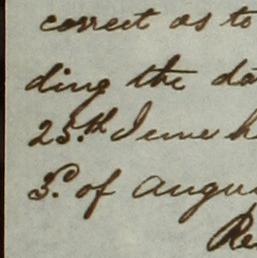 correct as to
ding the da
25.th June h
3.d of Augu
Re